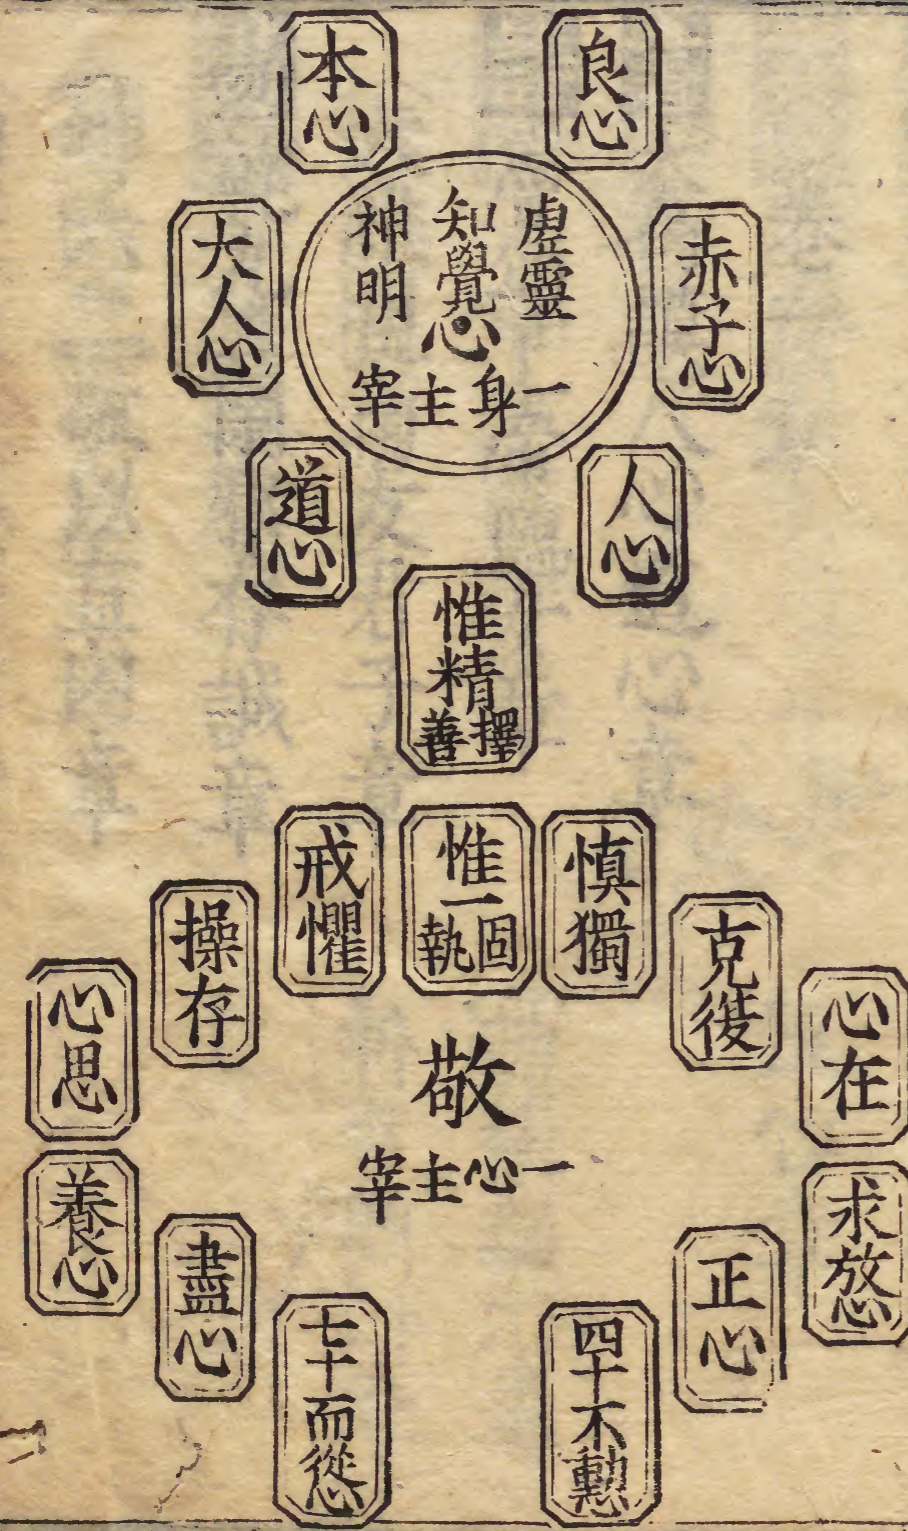 良心
本心
虛靈
知覺
神明
心
一身主宰
赤子心
大人心
人心
道心
惟精
擇善
惟一
固執
慎獨
戒懼
克復
操存
心在
心思
敬
一心主宰
求放心
養心
正心
盡心
四十不動心
七十而從心